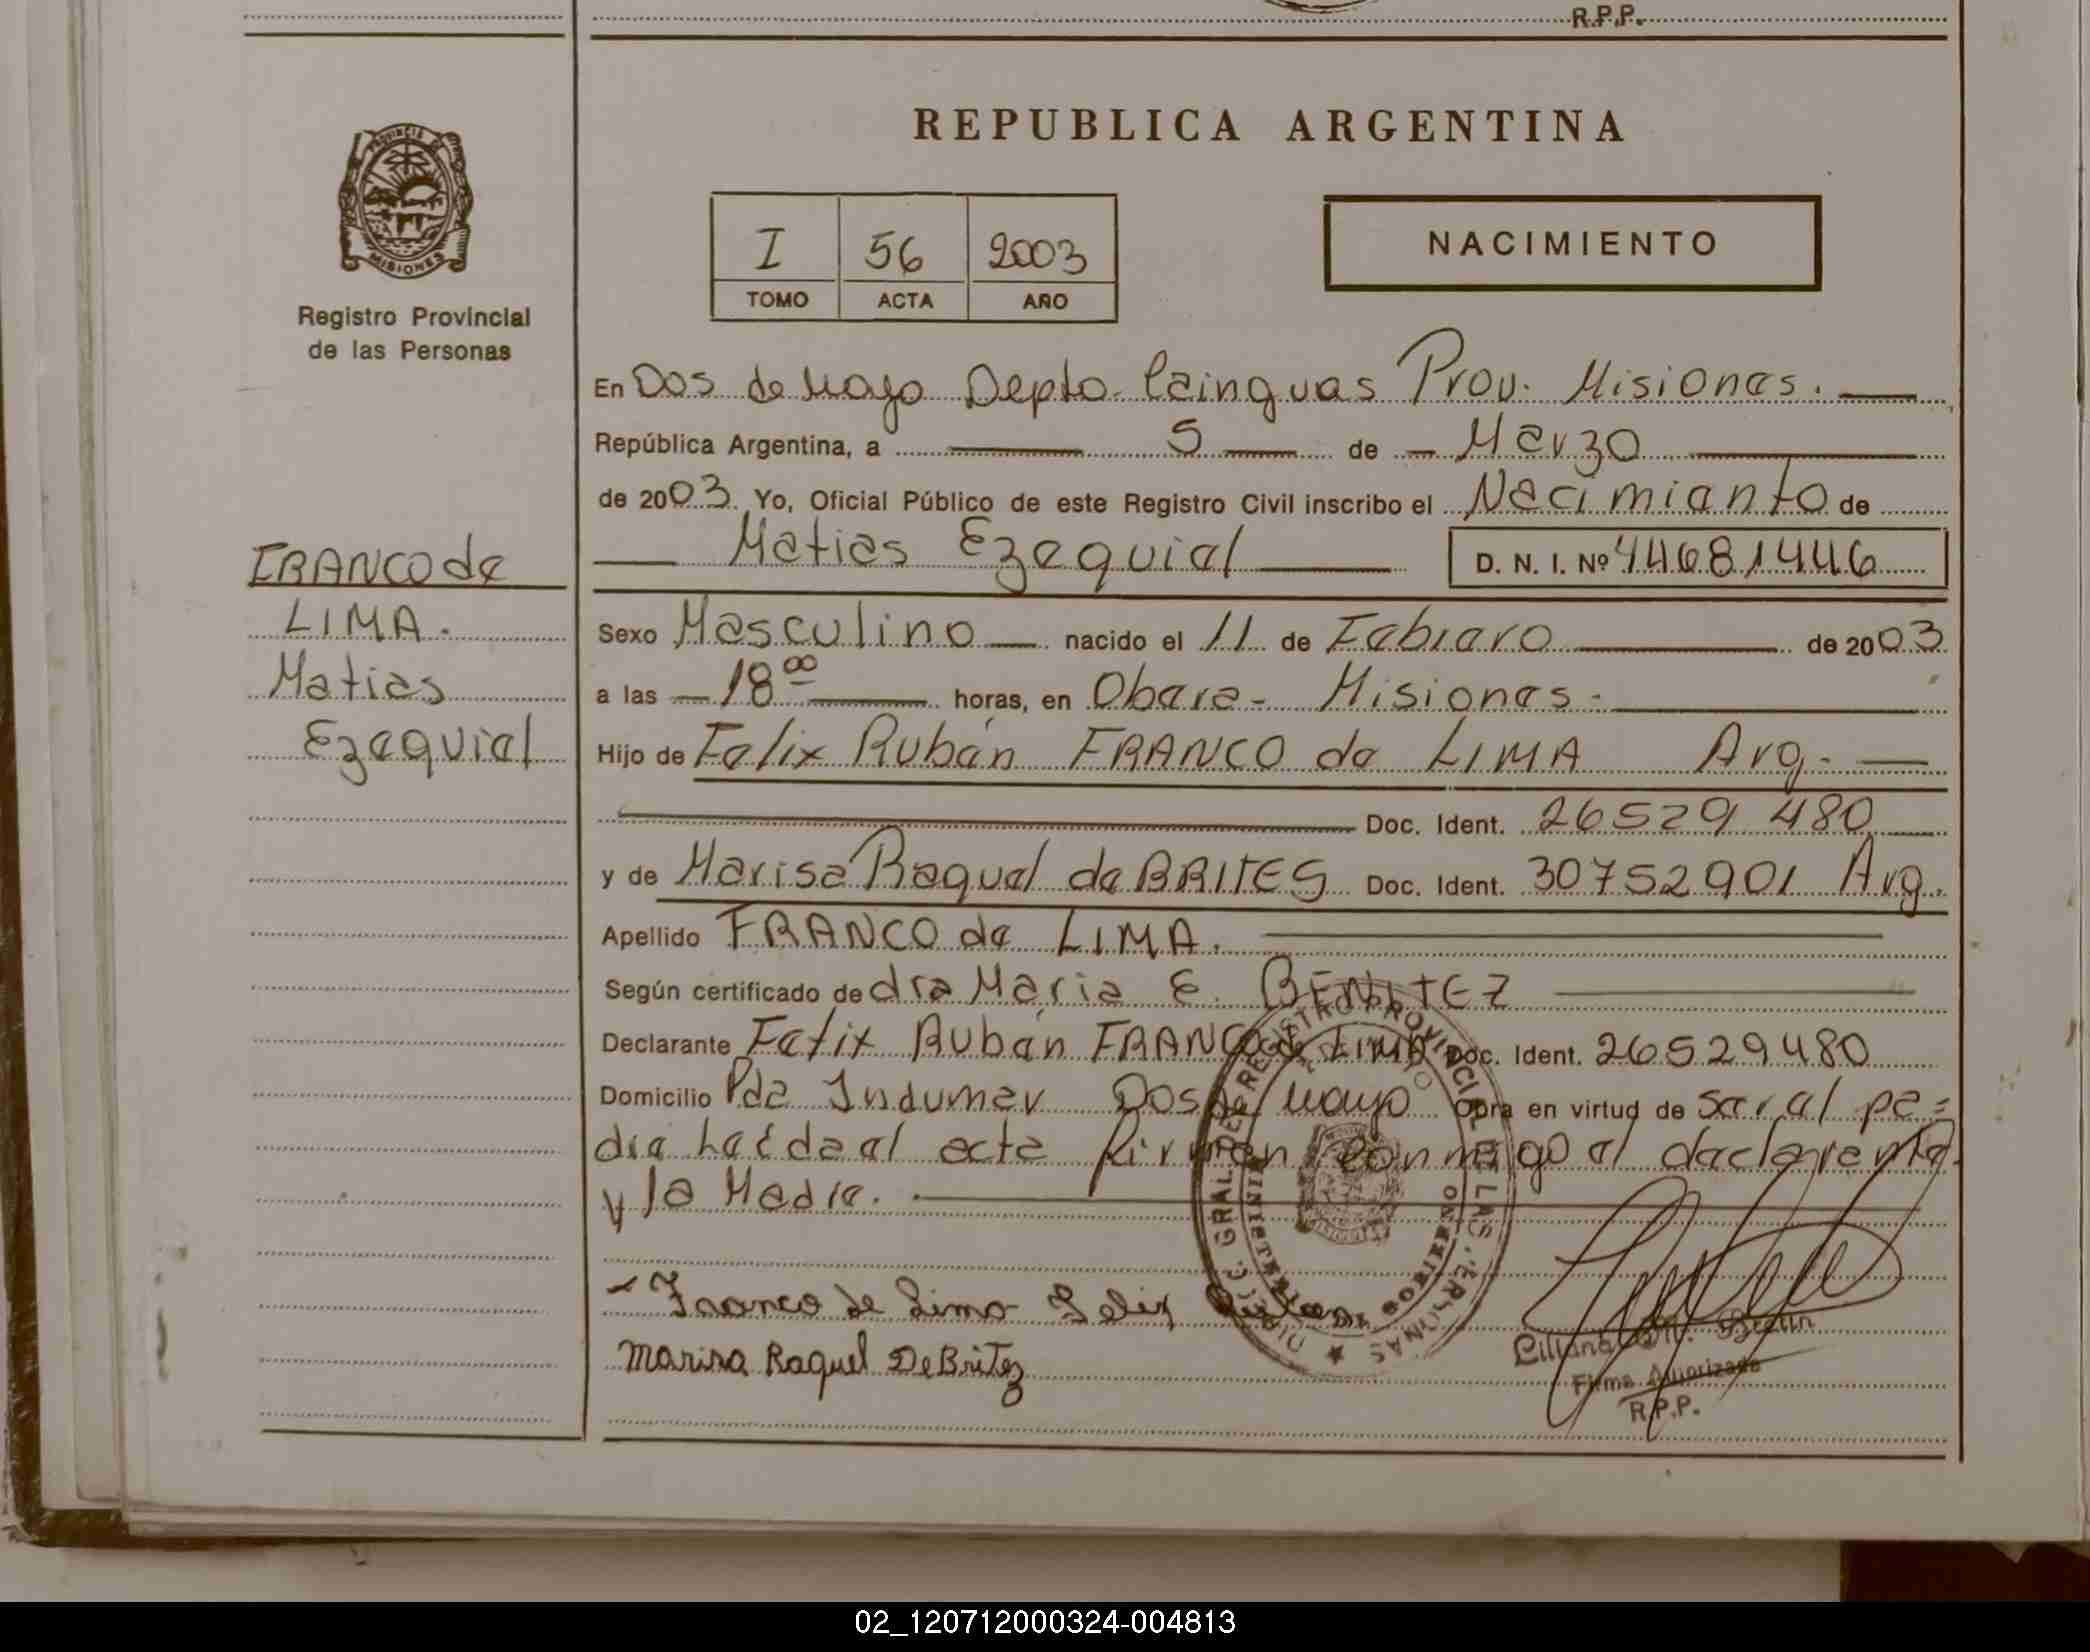 R.P.P.
REPUBLICA ARGENTINA
PROVINCIA DE
MISIONES
Registro Provincial
de las Personas
I 56 2003
TOMO ACTA AÑO
NACIMIENTO
En Dos de Mayo Depto. Cainguas Prov. Misiones.
República Argentina, a 5 de Marzo
de 2003. Yo, Oficial Público de este Registro Civil inscribo el Nacimiento de
Matias Ezequiel D. N. I. Nº 44681446
FRANCO de
LIMA.
Matias
Ezequiel
Sexo Masculino nacido el 11 de Febrero de 2003
a las 18 00 horas, en Obera - Misiones -
Hijo de Felix Rubén FRANCO de LIMA Arg.
Doc. Ident. 26529480
y de Marisa Raquel de BRITES Doc. Ident. 30752901 Arg.
Apellido FRANCO de LIMA.
Según certificado de dra Maria E. BENITEZ
Declarante Felix Rubén FRANCO de LIMA Doc. Ident. 26529480
Domicilio Pda Indumar Dos de Mayo Obra en virtud de ser el pa=
dre Leída el acta firman conmigo el declarante
y la Madre.
Franco de Lima Felix Ruben
Marisa Raquel De Britez
Firma Autorizada
R.P.P.
02_120712000324-004813